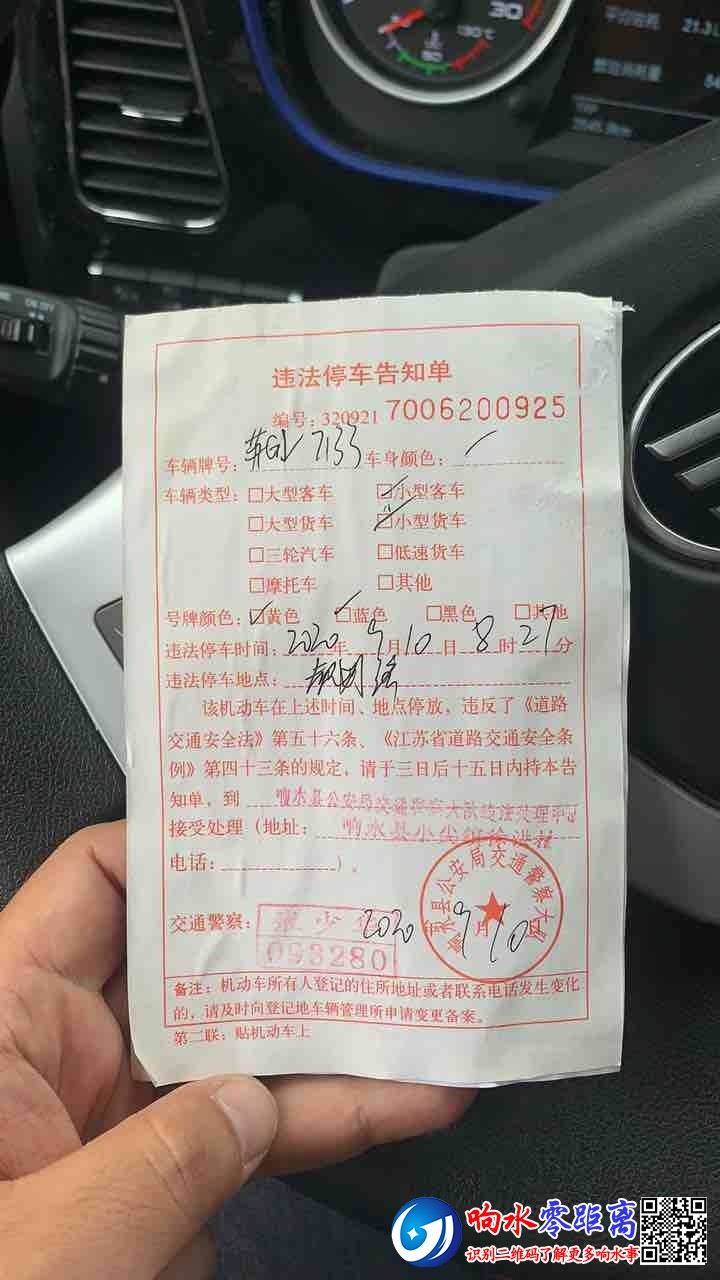 30
130℃
60
平均油耗
21.3
违法停车告知单
编号:320921 7006200925
车辆牌号: 7133 车身颜色:
车辆类型: □大型客车 ☑小型客车
□大型货车 ☑小型货车
□三轮汽车 □低速货车
□摩托车 □其他
号牌颜色: ☑黄色 ☑蓝色 □黑色 □其他
违法停车时间: 2020年9月10日8时27分
违法停车地点:
该机动车在上述时间、地点停放,违反了《道路
交通安全法》第五十六条、《江苏省道路交通安全条
例》第四十三条的规定,请于三日后十五日内持本告
知单,到 响水县公安局交通警察大队违法处理中心
接受处理(地址: 响水县小尖镇
电话: )。
交通警察: 张少华
093280
响水县公安局交通警察大队
2020年9月10日
备注:机动车所有人登记的住所地址或者联系电话发生变化
的,请及时向登记地车辆管理所申请变更备案。
第二联:贴机动车上
响水零距离
识别二维码了解更多响水事